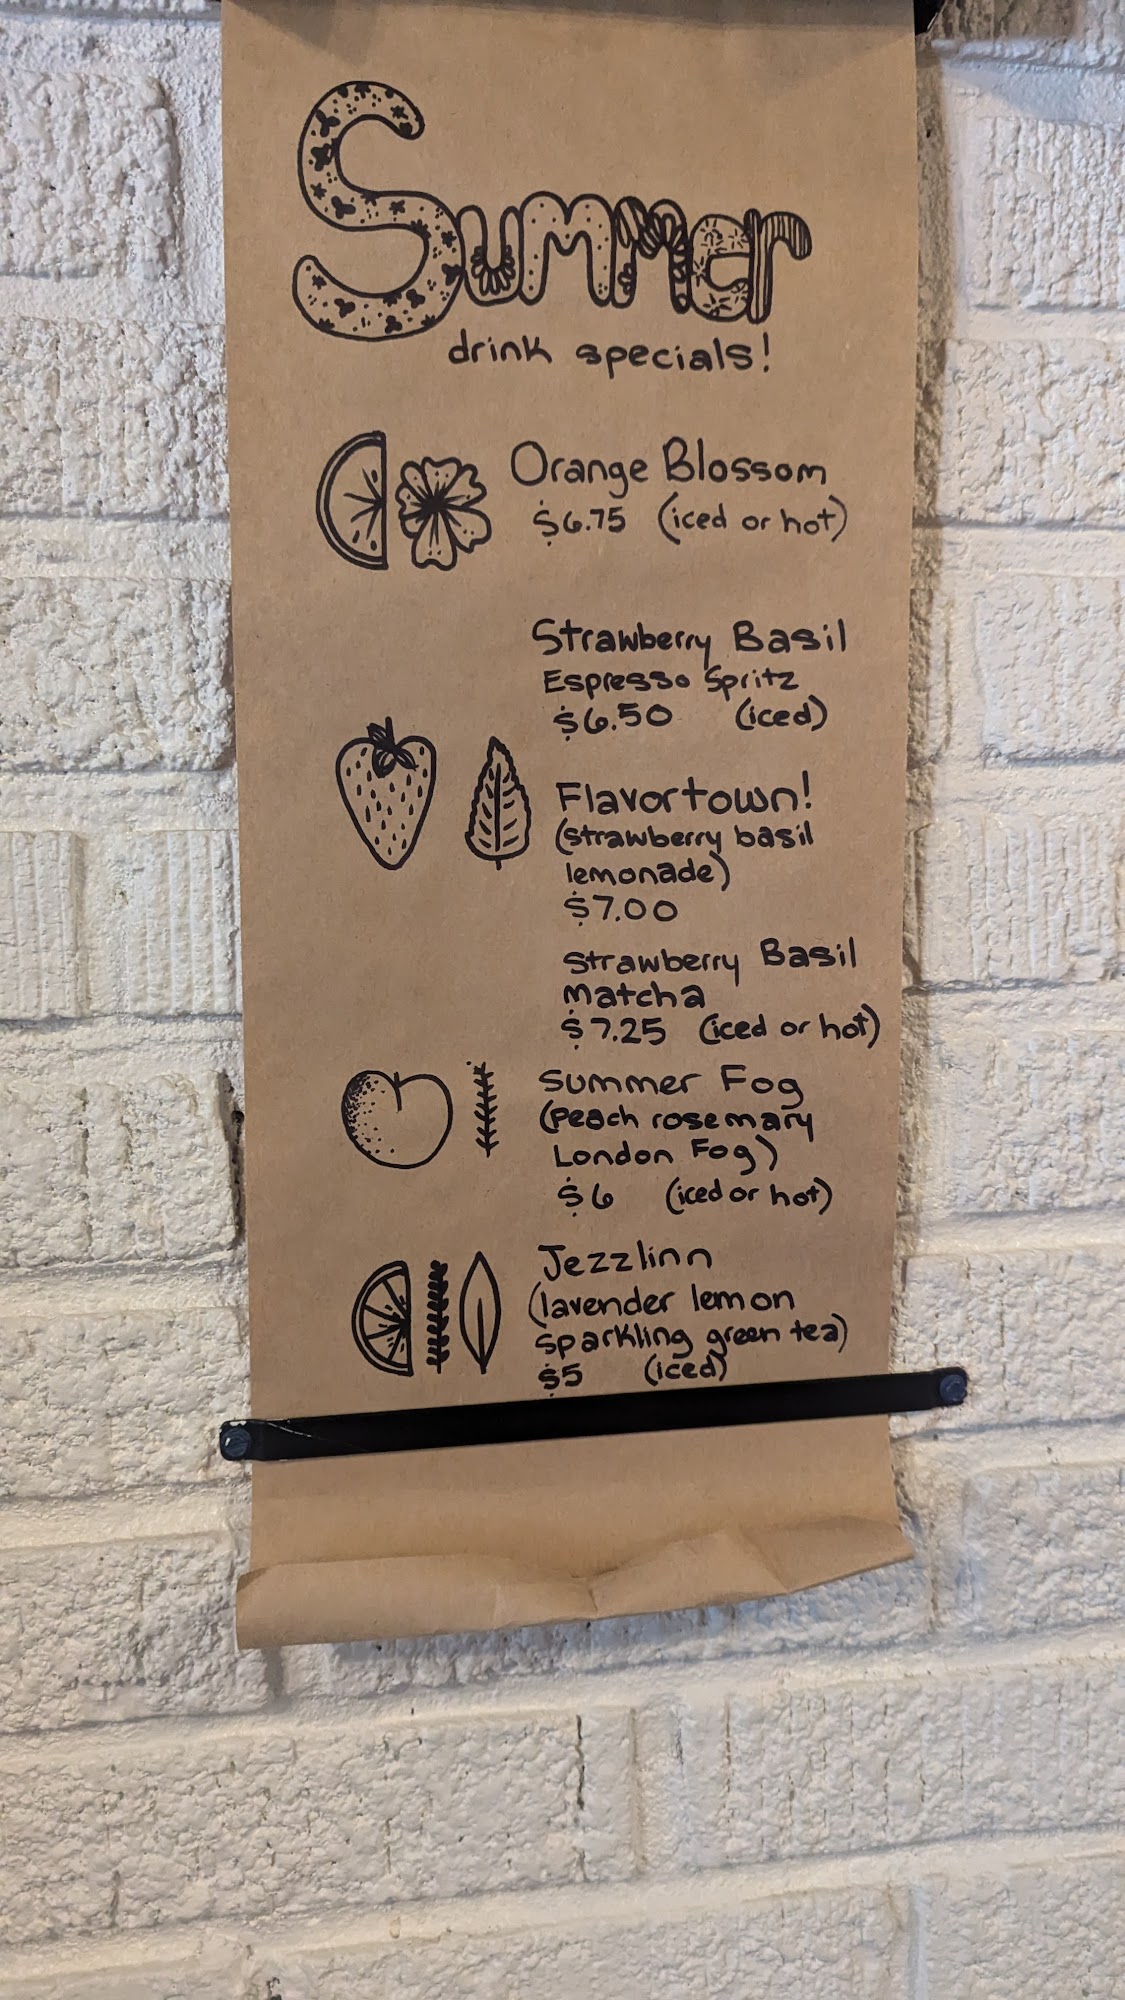 Summer
drink specials!
Orange Blossom
$6.75 (iced or hot)
Strawberry Basil
Espresso Spritz
$6.50 (iced)
Flavortown!
(strawberry basil
lemonade)
$7.00
Strawberry Basil
Matcha
$7.25 (iced or hot)
Summer Fog
(Peach rosemary
London Fog)
$6 (iced or hot)
Jezzlinn
(lavender lemon
sparkling green tea)
$5 (iced)